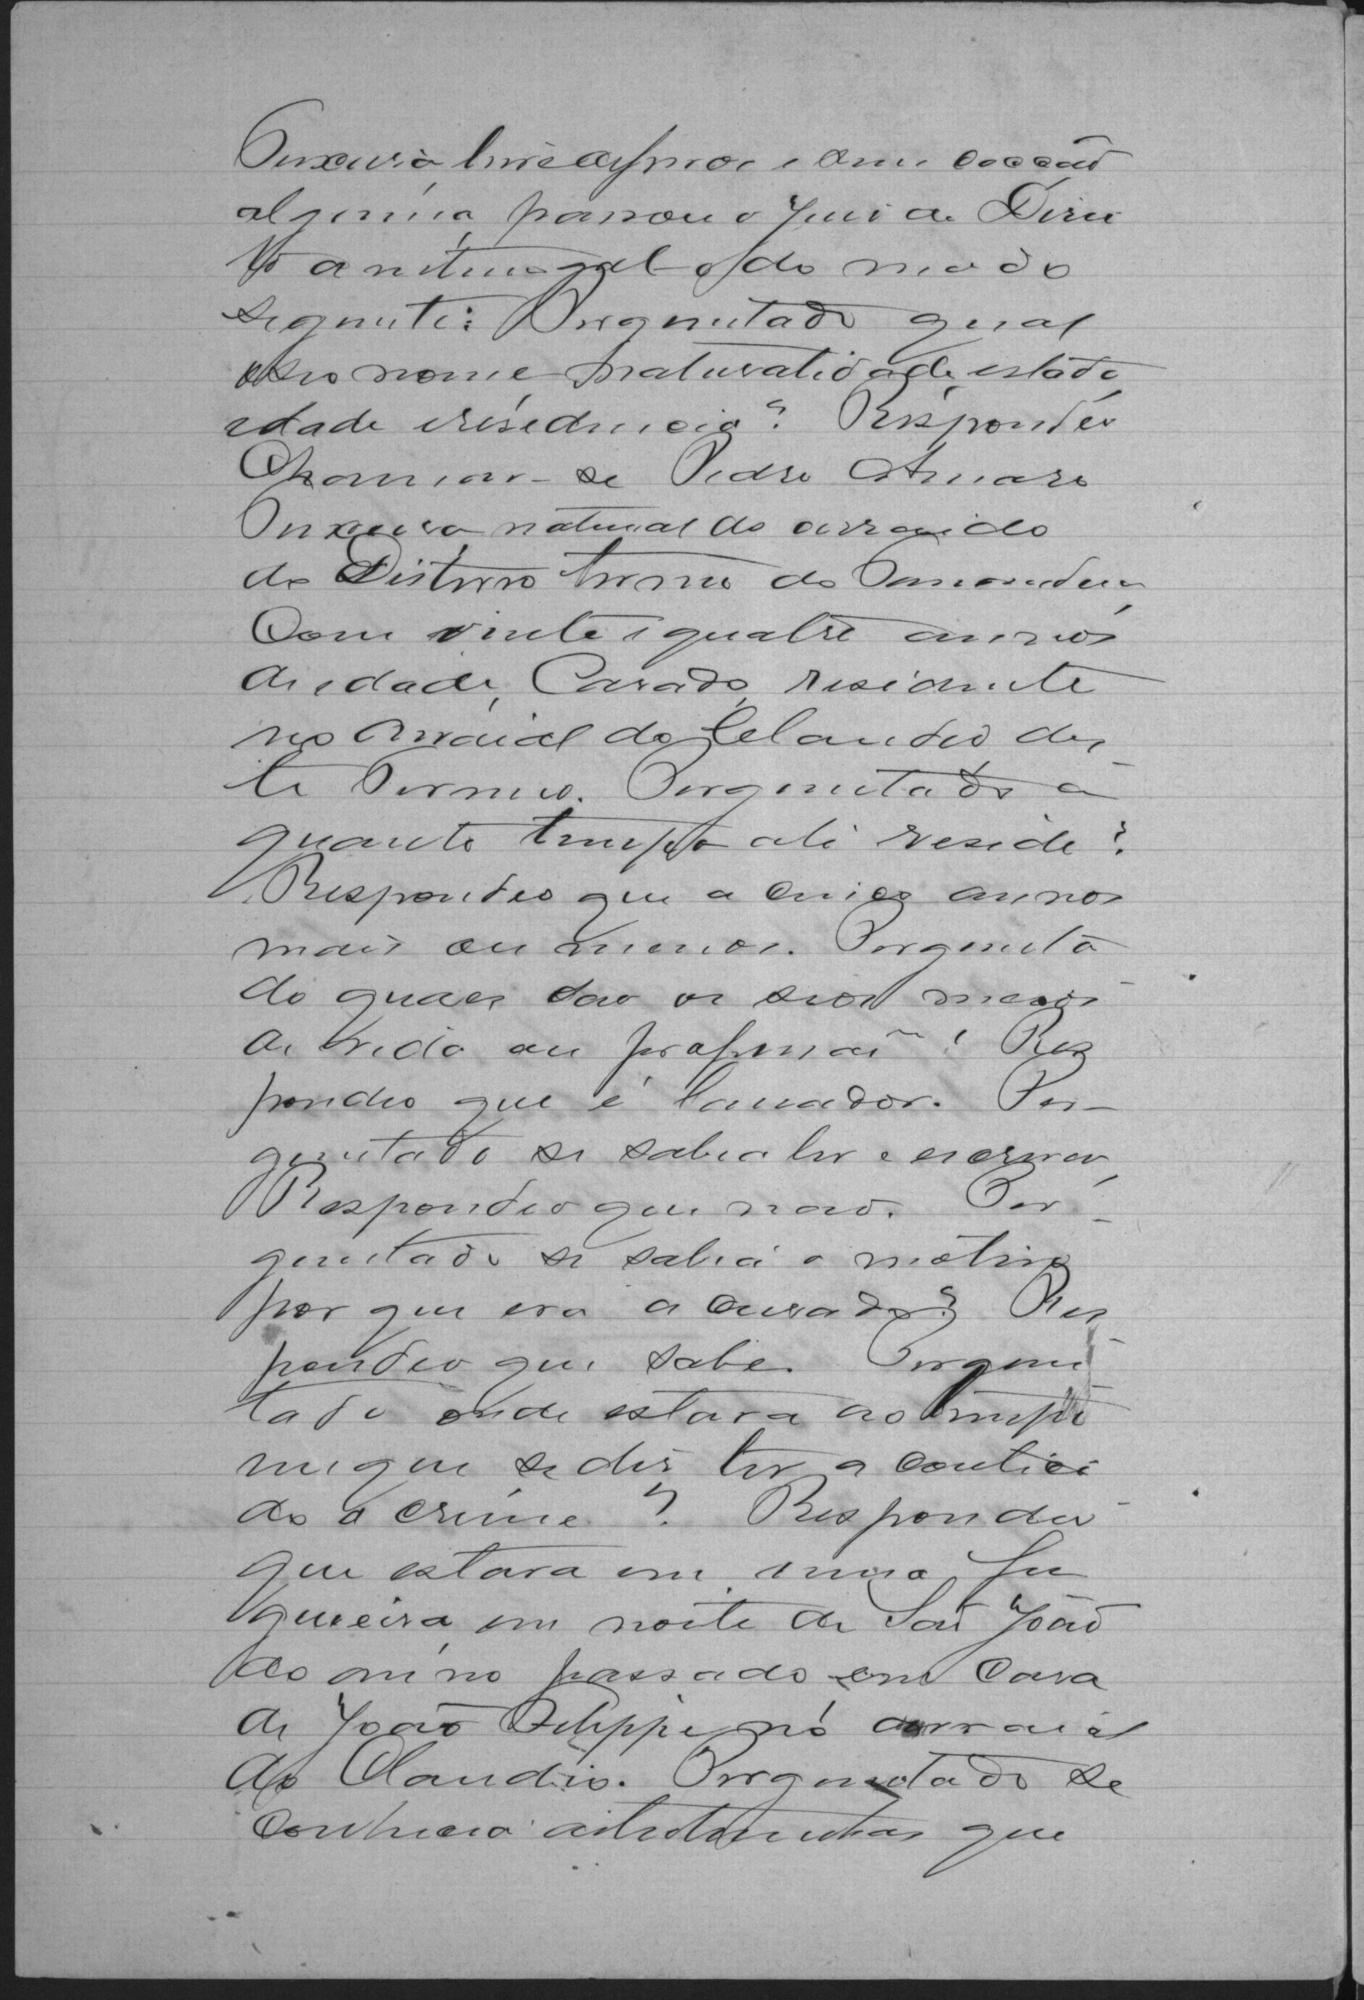 Teixeira, livre de ferros e sem coacção
alguma, passou o Juiz de Direi
to a interrogal-o do modo
seguinte: Perguntado qual
o seu nome naturalidade, estado,
edade e residencia? Respondeo
Chamar-se Pedro Amaro
Teixeira natural do arraial do
do Disterro termo do Tamanduá,
Com vinte e quatro annos
de edade, Casado, residente
no Arraial do Claudio des
te Termo. Perguntado a
quanto tempo ali reside?
Respondeo que a cinco annos
mais ou menos. Pergunta
do quaes são os seos meios
de vida ou profissão? Res
pondeo que é lavrador. Per-
guntado se sabia ler e escrever,
Respondeo que não. Per-
guntado se sabia o motivo
por que era accusado? Res
pondeo que sabe. Pergun
tado onde estava ao tempo
em que se diz ter aconteci
do o crime? Respondeo
que estava em uma fo
gueira em noite de São João
do anno passado em casa
de João Felippe no arraial
do Claudio. Perguntado se
conhecia as testemunhas que